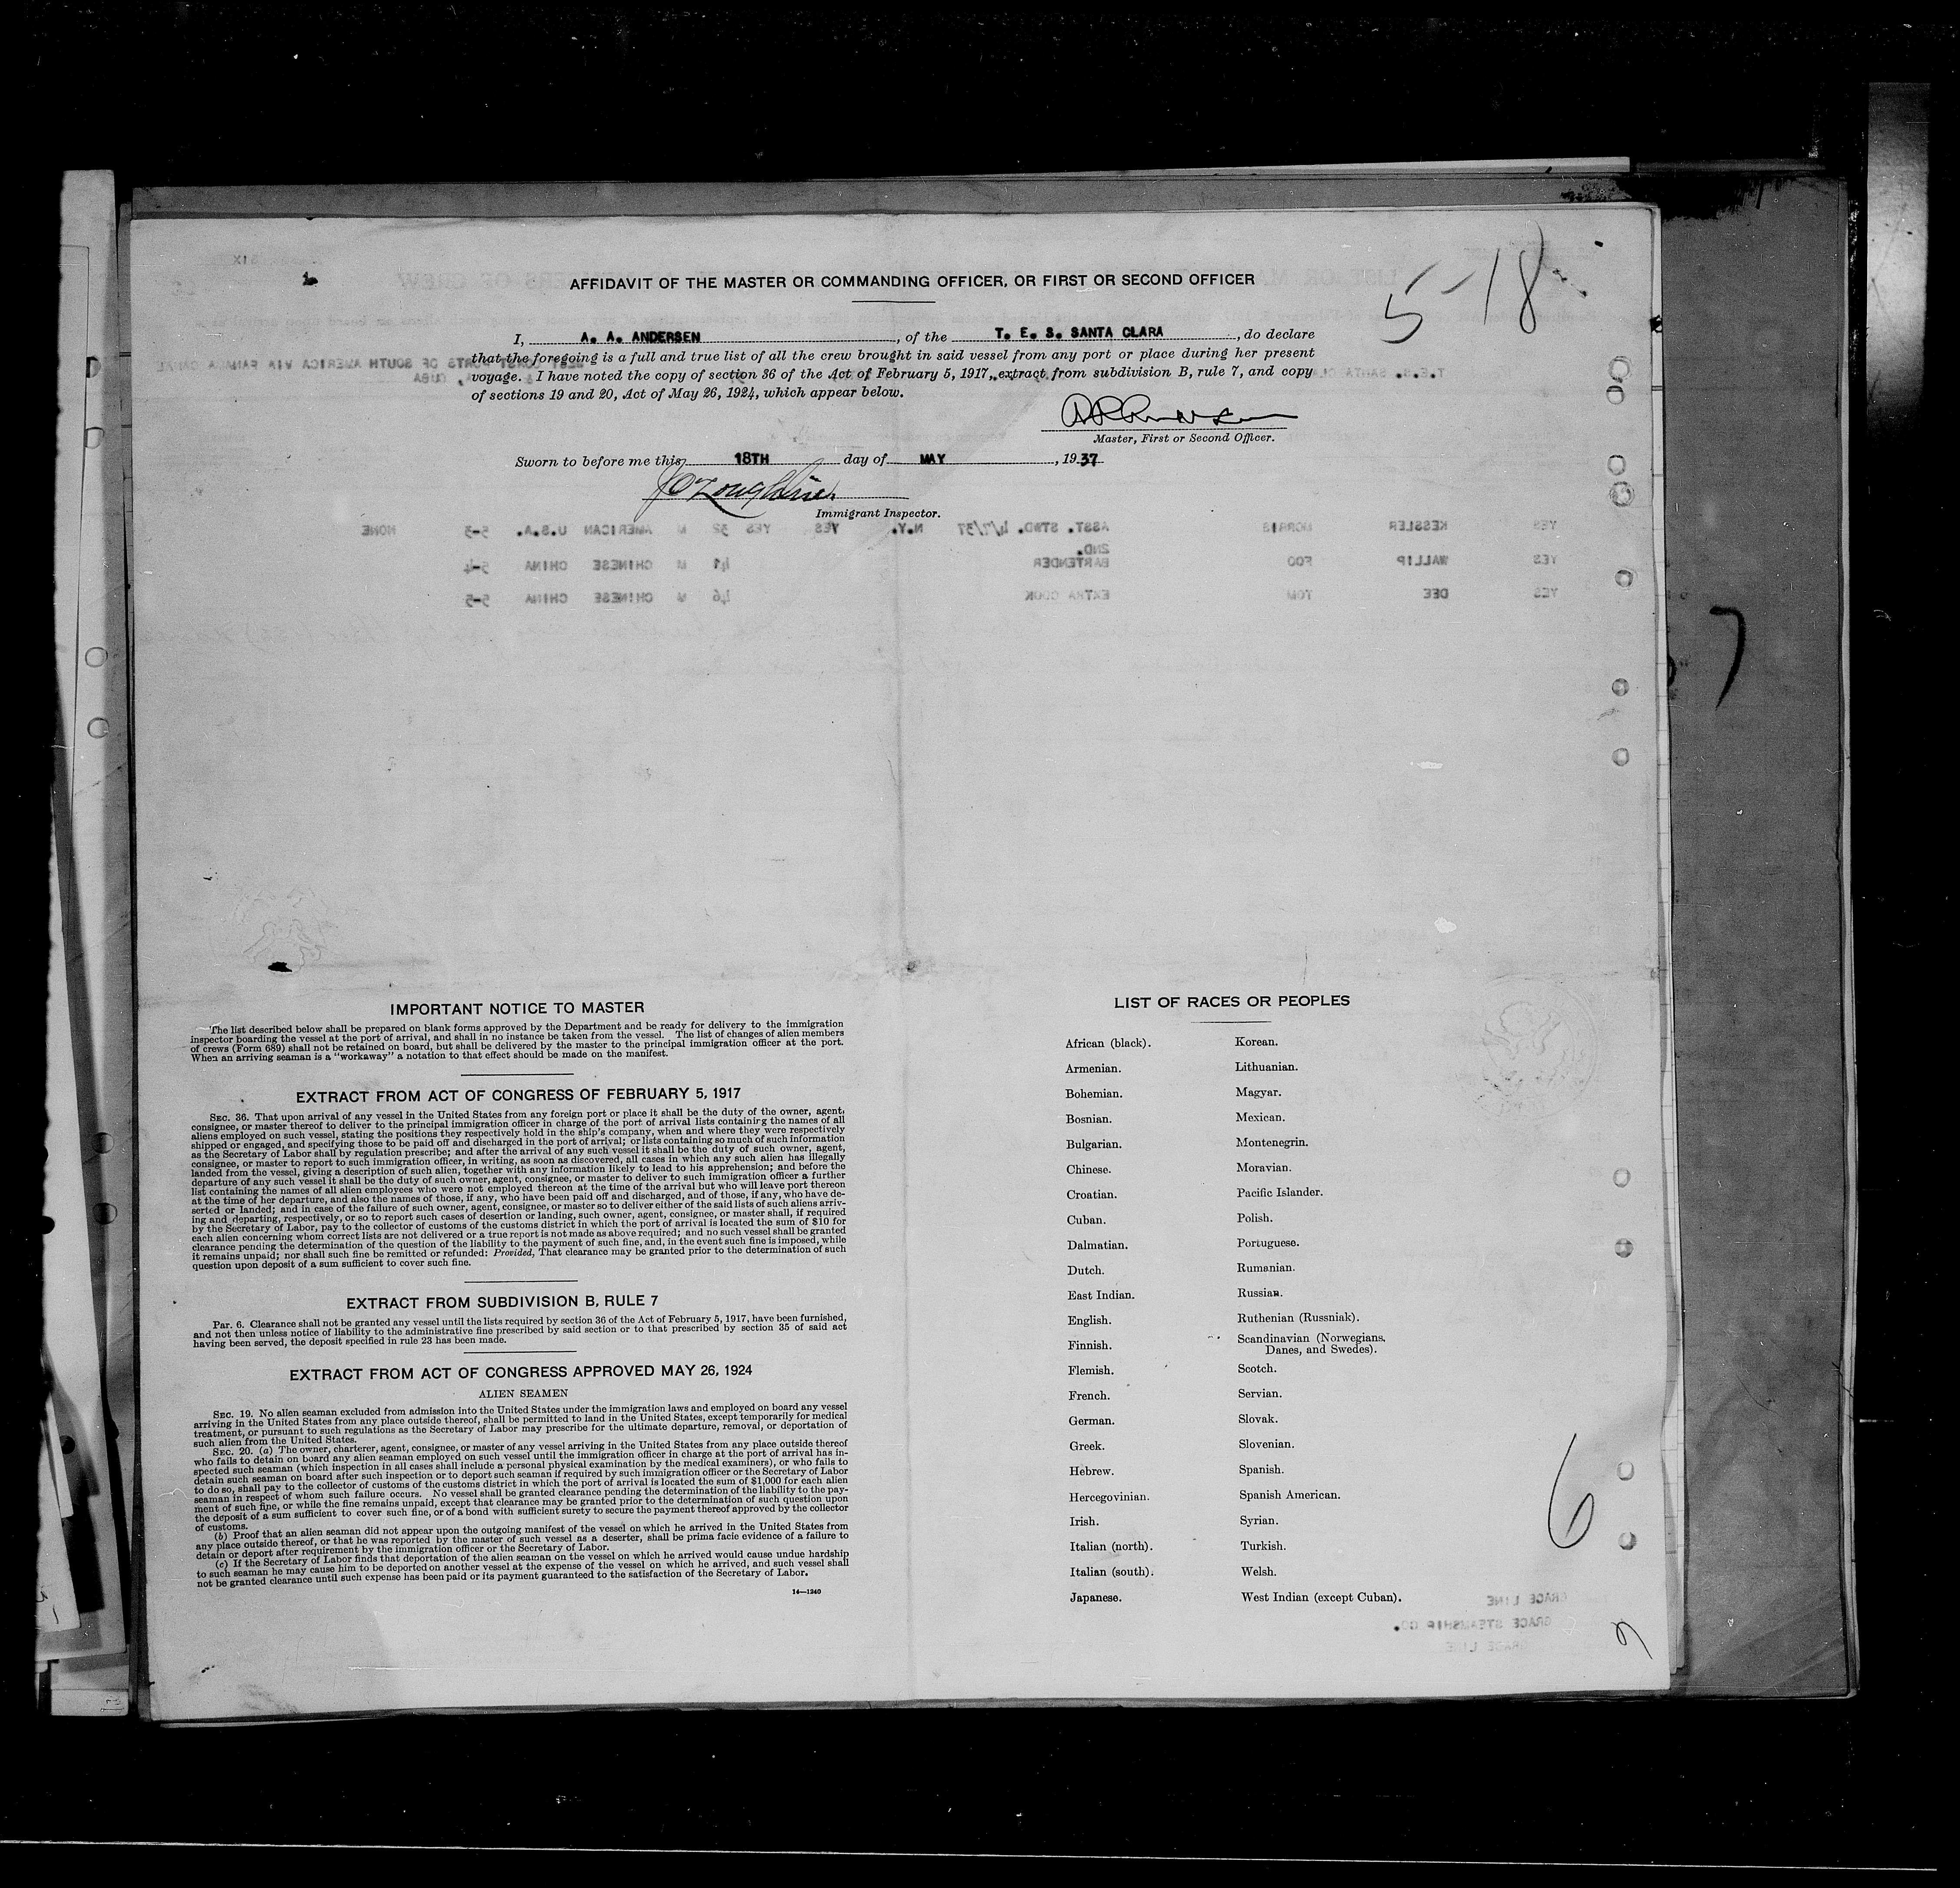 AFFIDAVIT OF THE MASTER OR COMMANDING OFFICER, OR FIRST OR SECOND OFFICER
5-18
I, A. A. ANDERSEN, of the T. E. S. SANTA CLARA, do declare
that the foregoing is a full and true list of all the crew brought in said vessel from any port or place during her present
voyage. I have noted the copy of section 36 of the Act of February 5, 1917, extract from subdivision B, rule 7, and copy
of sections 19 and 20, Act of May 26, 1924, which appear below.
Master, First or Second Officer.
Sworn to before me this 18TH day of MAY, 1937
Immigrant Inspector.
YES KESSLER MORRIS ASST. STWD. 4/7/37 N.Y. YES YES 32 M AMERICAN U.S.A. 5-3 NONE
2ND.
YES WALLIP FOO BARTENDER 41 M CHINESE CHINA 5-4
YES DEE TOM EXTRA COOK 46 M CHINESE CHINA 5-5
7
IMPORTANT NOTICE TO MASTER
The list described below shall be prepared on blank forms approved by the Department and be ready for delivery to the immigration
inspector boarding the vessel at the port of arrival, and shall in no instance be taken from the vessel. The list of changes of alien members
of crews (Form 689) shall not be retained on board, but shall be delivered by the master to the principal immigration officer at the port.
When an arriving seaman is a "workaway" a notation to that effect should be made on the manifest.
EXTRACT FROM ACT OF CONGRESS OF FEBRUARY 5, 1917
SEC. 36. That upon arrival of any vessel in the United States from any foreign port or place it shall be the duty of the owner, agent,
consignee, or master thereof to deliver to the principal immigration officer in charge of the port of arrival lists containing the names of all
aliens employed on such vessel, stating the positions they respectively hold in the ship's company, when and where they were respectively
shipped or engaged, and specifying those to be paid off and discharged in the port of arrival; or lists containing so much of such information
as the Secretary of Labor shall by regulation prescribe; and after the arrival of any such vessel it shall be the duty of such owner, agent,
consignee, or master to report to such immigration officer, in writing, as soon as discovered, all cases in which any such alien has illegally
landed from the vessel, giving a description of such alien, together with any information likely to lead to his apprehension; and before the
departure of any such vessel it shall be the duty of such owner, agent, consignee, or master to deliver to such immigration officer a further
list containing the names of all alien employees who were not employed thereon at the time of the arrival but who will leave port thereon
at the time of her departure, and also the names of those, if any, who have been paid off and discharged, and of those, if any, who have de-
serted or landed; and in case of the failure of such owner, agent, consignee, or master so to deliver either of the said lists of such aliens arriv-
ing and departing, respectively, or so to report such cases of desertion or landing, such owner, agent, consignee, or master, shall, if required
by the Secretary of Labor, pay to the collector of customs of the customs district in which the port of arrival is located the sum of $10 for
each alien concerning whom correct lists are not delivered or a true report is not made as above required; and no such vessel shall be granted
clearance pending the determination of the question of the liability to the payment of such fine, and, in the event such fine is imposed, while
it remains unpaid; nor shall such fine be remitted or refunded: Provided, That clearance may be granted prior to the determination of such
question upon deposit of a sum sufficient to cover such fine.
EXTRACT FROM SUBDIVISION B, RULE 7
Par. 6. Clearance shall not be granted any vessel until the lists required by section 36 of the Act of February 5, 1917, have been furnished,
and not then unless notice of liability to the administrative fine prescribed by said section or to that prescribed by section 35 of said act
having been served, the deposit specified in rule 23 has been made.
EXTRACT FROM ACT OF CONGRESS APPROVED MAY 26, 1924
ALIEN SEAMEN
SEC. 19. No alien seaman excluded from admission into the United States under the immigration laws and employed on board any vessel
arriving in the United States from any place outside thereof, shall be permitted to land in the United States, except temporarily for medical
treatment, or pursuant to such regulations as the Secretary of Labor may prescribe for the ultimate departure, removal, or deportation of
such alien from the United States.
SEC. 20. (a) The owner, charterer, agent, consignee, or master of any vessel arriving in the United States from any place outside thereof
who fails to detain on board any alien seaman employed on such vessel until the immigration officer in charge at the port of arrival has in-
spected such seaman (which inspection in all cases shall include a personal physical examination by the medical examiners), or who fails to
detain such seaman on board after such inspection or to deport such seaman if required by such immigration officer or the Secretary of Labor
to do so, shall pay to the collector of customs of the customs district in which the port of arrival is located the sum of $1,000 for each alien
seaman in respect of whom such failure occurs. No vessel shall be granted clearance pending the determination of the liability to the pay-
ment of such fine, or while the fine remains unpaid, except that clearance may be granted prior to the determination of such question upon
the deposit of a sum sufficient to cover such fine, or of a bond with sufficient surety to secure the payment thereof approved by the collector
of customs.
(b) Proof that an alien seaman did not appear upon the outgoing manifest of the vessel on which he arrived in the United States from
any place outside thereof, or that he was reported by the master of such vessel as a deserter, shall be prima facie evidence of a failure to
detain or deport after requirement by the immigration officer or the Secretary of Labor.
(c) If the Secretary of Labor finds that deportation of the alien seaman on the vessel on which he arrived would cause undue hardship
to such seaman he may cause him to be deported on another vessel at the expense of the vessel on which he arrived, and such vessel shall
not be granted clearance until such expense has been paid or its payment guaranteed to the satisfaction of the Secretary of Labor.
14—1240
LIST OF RACES OR PEOPLES
African (black). Korean.
Armenian. Lithuanian.
Bohemian. Magyar.
Bosnian. Mexican.
Bulgarian. Montenegrin.
Chinese. Moravian.
Croatian. Pacific Islander.
Cuban. Polish.
Dalmatian. Portuguese.
Dutch. Rumanian.
East Indian. Russian.
English. Ruthenian (Russniak).
Finnish. Scandinavian (Norwegians,
Danes, and Swedes).
Flemish. Scotch.
French. Servian.
German. Slovak.
Greek. Slovenian.
Hebrew. Spanish.
Hercegovinian. Spanish American.
Irish. Syrian.
Italian (north). Turkish.
Italian (south). Welsh.
Japanese. West Indian (except Cuban).
6
GRACE LINE
GRACE STEAMSHIP CO.
GRACE LINE